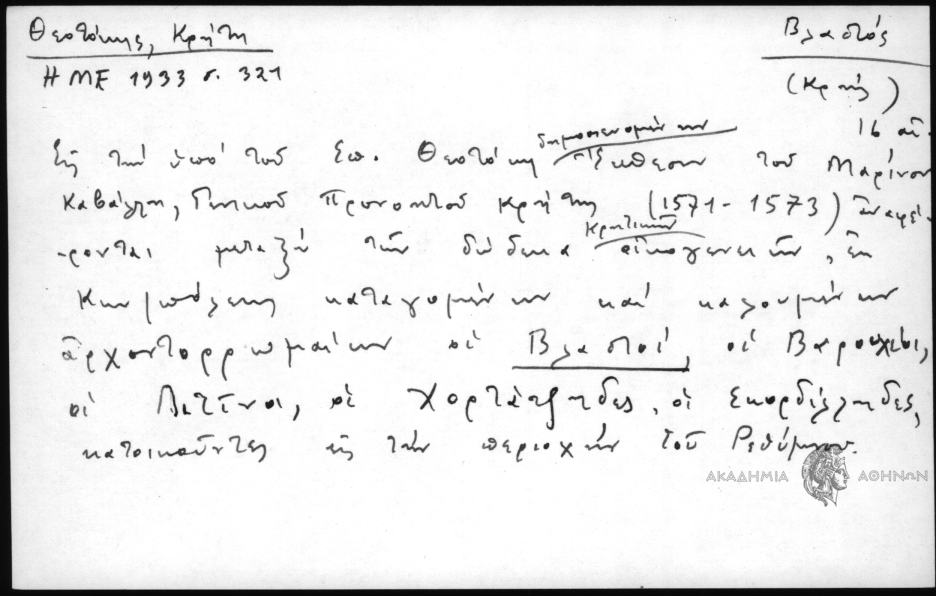 Θεοτόκης, Κρήτη
ΗΜΕ 1933 σ. 321
Βλαστός
(Κρής)
16 αἰ.
Εἰς τὴν ὑπό τοῦ Σπ. Θεοτόκη δημοσιευομένην Ἔκθεσιν τοῦ Μαρίνου
Καβάλλη, Γενικοῦ Προνοητοῦ Κρήτης (1571-1573) ἀναφέ-
ρονται μεταξύ τῶν δώδεκα Κρητικῶν οἰκογενειῶν, ἐκ
Κων/πόλεως καταγομένων καί καλουμένων
ἀρχοντορρωμαίων οἱ Βλαστοί, οἱ Βαρούχιοι,
οἱ Λιτῖνοι, οἱ Χορτάτζηδες, οἱ Σκορδίληδες,
κατοικοῦντες εἰς τήν περιοχήν τοῦ Ρεθύμνου.
ΑΚΑΔΗΜΙΑ ΑΘΗΝΩΝ